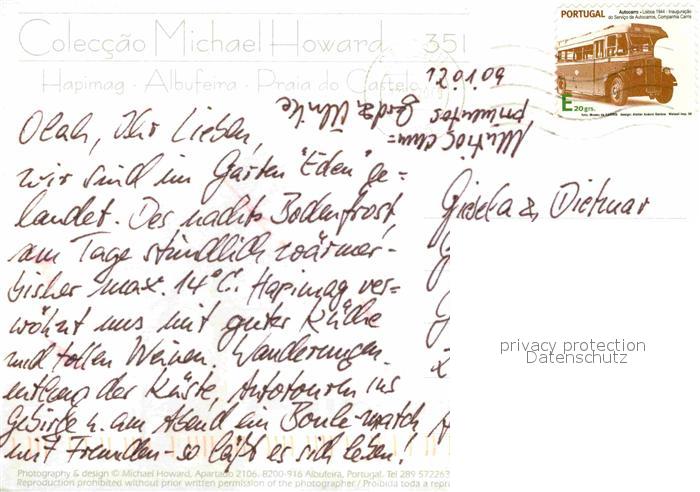 Colecção Michael Howard 351
Hapimag · Albufeira · Praia do Castelo
PORTUGAL
Autocarro • Lisboa 1944 - Inauguração
do Serviço de Autocarros, Companhia Carris
E 20 grs.
12.01.09
Muitos cum=
primentos
Olah, Ihr Lieben,
wir sind im Garten "Eden" ge=
landet. Des nachts Bodenfrost,
am Tage stündlich wärmer-
bisher max. 14°C. Hapimag ver=
wöhnt uns mit guter Küche
und tollen Weinen. Wanderungen
entlang der Küste, Autotouren ins
Gebirge u. am Abend ein Boule-match
mit Freunden - so läßt es sich leben!
Gisela & Dietmar
privacy protection
Datenschutz
Photography & design © Michael Howard, Apartado 2106. 8200-916 Albufeira, Portugal. Tel 289 572263
Reproduction prohibited without prior written permission of the photographer / Proibida toda a repr